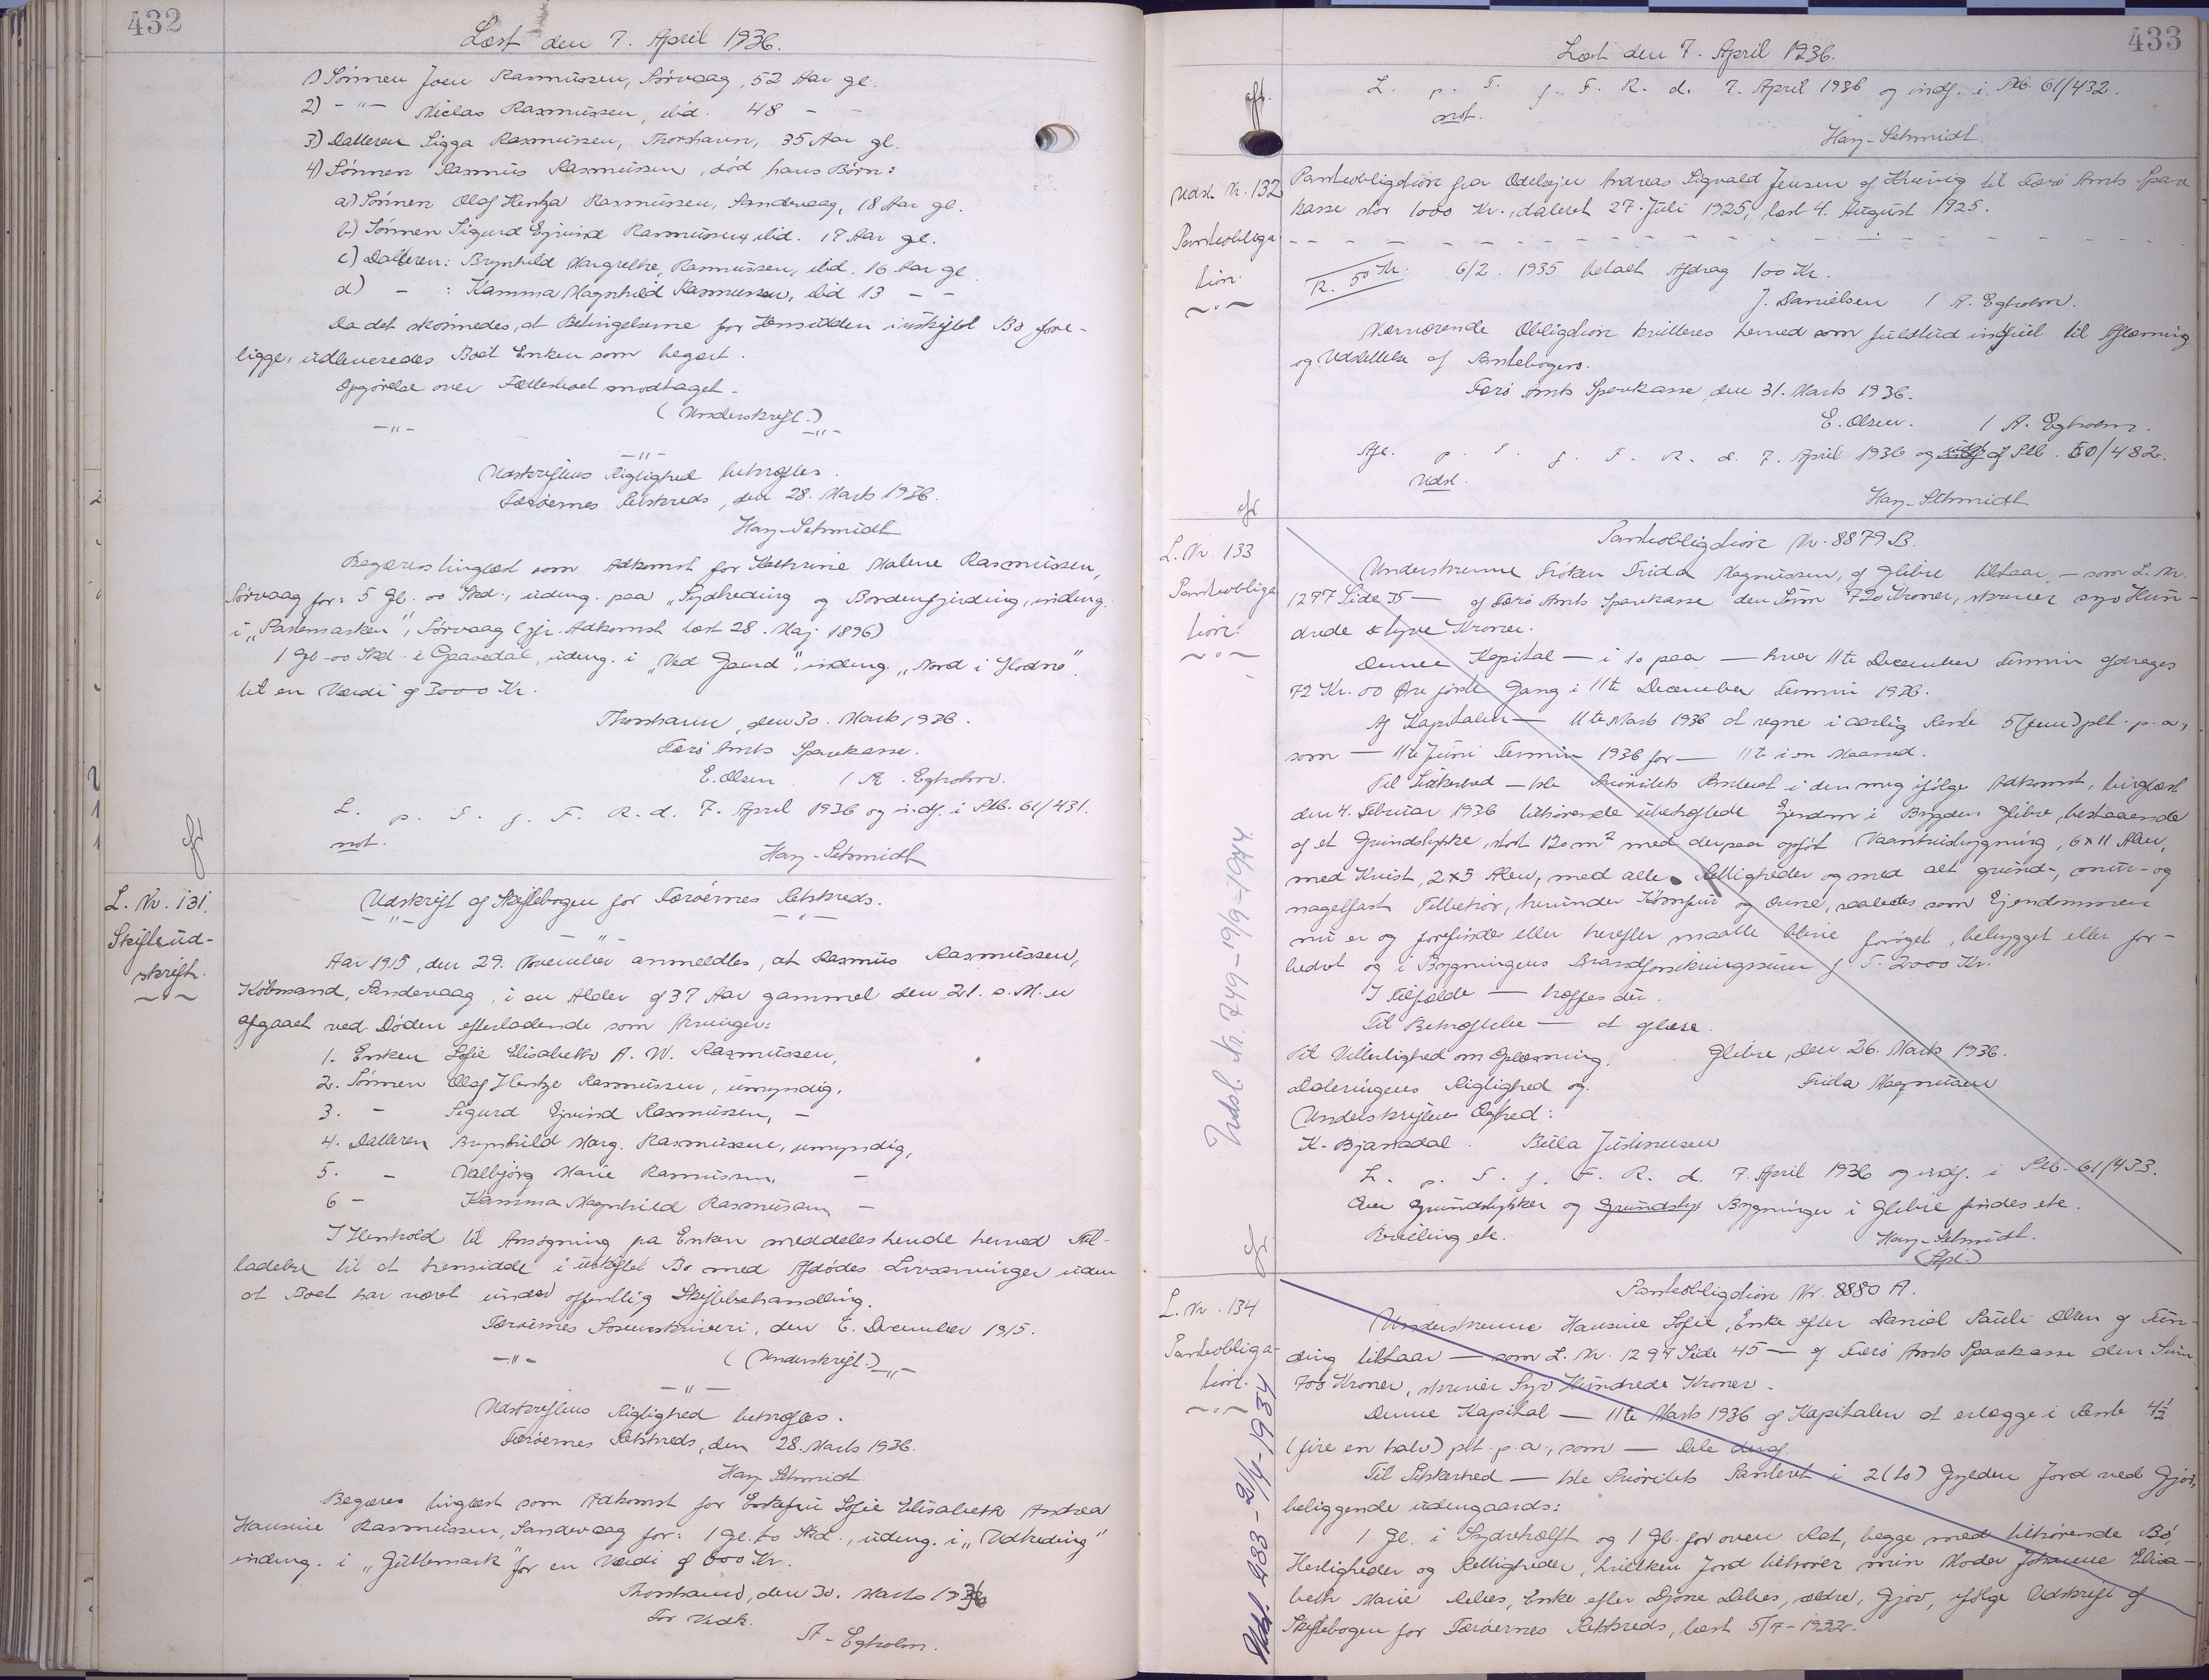 432
Læst den 7. April 1936.
1) Sønnen Joen Rasmussen, Sørvaag, 52 Aar gl.
2) -"- Niclas Rasmussen, ibid. 48 - -
3) Datteren Sigga Rasmussen, Thorshavn, 35 Aar gl.
4) Sønnen Rasmus Rasmussen, død, hans Børn:
a) Sønnen Olaf Hentza Rasmussen, Sandevaag, 18 Aar gl.
b) Sønnen Sigurd Ejvind Rasmussen, ibid. 17 Aar gl.
c) Datteren: Brynhild Margrethe Rasmussen, ibid. 16 Aar gl.
d) - : Kamma Magnhild Rasmussen, ibid 13 - -
Da det skønnedes, at Betingelserne for Hensidden i uskiftet Bo fore-
ligge, udleveredes Boet Enken som begært.
Opgørelse over Fællesboet modtaget.
(Underskrift.)
-"- -"-
-"-
Udskriftens Rigtighed bekræftes.
Færøernes Retskreds, den 28. Marts 1936.
Hay-Schmidt
Begæres tinglæst som Adkomst for Kathrine Malene Rasmussen,
Sørvaag for: 5 Gl. 00 Skd., udeng. paa "Sydheding og Bordenfjrding, indeng.
i "Pastemarken", Sørvaag (jfr. Adkomst læst 28. Maj 1896)
1 Gl. 00 Skd. i Gaasedal, udeng. i "Ved Gaard", indeng. "Nord i Hodne".
til en Værdi af 3000 Kr.
Thorshavn, den 30. Marts 1936.
Færø Amts Sparekasse.
E. Olsen / A. Egholm.
L. p. T. f. F. R. d. 7. April 1936 og indf. i Ptb. 61/431.
not.
Hay-Schmidt
L. Nr. 131.
Skifteud-
skrift.
Udskrift af Skiftebogen for Færøernes Retskreds.
-"- -"-
-"-
Aar 1915, den 29. November anmeldtes, at Rasmus Rasmussen,
Købmand, Sandevaag, i en Alder af 37 Aar gammel den 21. s. M. er
afgaaet ved Døden efterladende som Arvinger:
1. Enken Sofie Elisabeth A. W. Rasmussen,
2. Sønnen Olaf Hentze Rasmussen, umyndig,
3. - Sigurd Ejvind Rasmussen, -
4. Datteren Brynhild Marg. Rasmussen, umyndig,
5. - Valbjørg Marie Rasmussen, -
6 - Kamma Magnhild Rasmussen, -
I Henhold til Ansøgning fra Enken meddeles hende herved Til-
ladelse til at hensidde i uskiftet Bo med Afdødes Livsarvinger uden
at Boet har været under offentlig Skiftebehandling.
Færøernes Sorenskriveri, den 6. December 1915.
-"- (Underskrift.) -"-
-"-
Udskriftens Rigtighed bekræftes.
Færøernes Retskreds, den 28. Marts 1936.
Hay-Schmidt.
Begæres tinglæst som Adkomst for Enkefru Sofie Elisabeth Andrea
Hansine Rasmussen, Sandevaag for: 1 Gl. to Skd., udeng. i "Udheding"
indeng. i "Gittemark" for en Værdi af 600 Kr.
Thorshavn, den 30. Marts 1936
For Vedk.
A. Egholm.
433
Læst den 7. April 1936.
L. p. T. f. F. R. d. 7. April 1936 og indf. i Ptb. 61/432.
not.
Hay-Schmidt.
Udsl. Nr. 132
Panteobliga-
tion.
Panteobligation fra Odelsejer Andreas Sigvald Jensen af Kvivig til Færø Amts Spare
kasse stor 1000 Kr., dateret 27. Juli 1925, læst 4. August 1925.
R. 50 Kr. 6/2. 1935 betalt Afdrag 100 Kr.
J. Danielsen / A. Egholm.
Nærværende Obligation kvitteres herved som fuldtud indfriet til Aflæsning
og Udslettelse af Pantebogen.
Færø Amts Sparekasse, den 31. Marts 1936.
E. Olsen. / A. Egholm.
Afl. p. T. f. F. R. d. 7. April 1936 og udsl. af Ptb. 50/482.
Udsl.
Hay-Schmidt
L. Nr. 133
Panteobliga
tion.
Panteobligation Nr. 8879 B.
Underskrevne Frøken Frida Magnussen, af Glibre tilstaar - som L. Nr.
1277 Side 35 - af Færø Amts Sparekasse den Sum 720 Kroner, skriver syv Hun-
drede & tyve Kroner.
Denne Kapital - i 10 paa - hver 11te December Termin afdrages
72 Kr. 00 Øre første Gang i 11te December Termin 1936.
Af Kapitalen - 11te Marts 1936 at regne i aarlig Rente 5 (fem) pCt. p. a.,
som - 11te Juni Termin 1936 for - 11te i en Maaned.
Til Sikkerhed - 1ste Prioritets Panteret i den mig ifølge Adkomst, tinglæst
den 4. Februar 1936 tilhørende ubehæftede Ejendom i Bygden Glibre, bestaaende
af et Grundstykke, stort 120 m² med derpaa opført Vaaningsbygning, 6x11 Alen,
med Kvist, 2x5 Alen, med alle Rettigheder og med alt grund-, mur- og
nagelfast Tilbehør, herunder Komfur og Ovne, saaledes som Ejendommen
nu er og forefindes eller herefter maatte blive forøget, bebygget eller for-
bedret og i Bygningens Brandforsikringssum f. T. 2000 Kr.
I Tilfælde - træffes der.
Til Bekræftelse - at gløse.
Til Vitterlighed om Oplæsning, Glibre, den 26. Marts 1936.
Dateringens Rigtighed og Frida Magnussen
Underskriftens Ægthed:
K. Bjarnadal. Billa Justinussen
L. p. T. f. F. R. d. 7. April 1936 og indf. i Ptb. 61/433.
Over Grundstykker og Grundsty Bygninger i Glibre findes etc.
Kvittering etc.
Hay-Schmidt.
Udsl. Nr. 749 - 19/9 - 1944
L. Nr. 134
Panteobliga-
tion.
Panteobligation Nr. 8880 A.
Underskrevne Hansine Sofie, Enke efter Daniel Pauli Olsen af Fun-
ding tilstaar - som L. Nr. 1297 Side 45 - af Færø Amts Sparekasse den Sum
700 Kroner, skriver Syv Hundrede Kroner.
Denne Kapital - 11te Marts 1936 af Kapitalen at erlægge i Rente 4½
(fire en halv) pCt. p. a., som -
Til Sikkerhed - 1ste Prioritets Panteret i 2 (to) Gylden Jord ved Gjov,
beliggende udengaards:
1 Gl. i Sydrehælft og 1 Gl. for oven Ret, begge med tilhørende Bø,
Herligheder og Rettigheder, hvilken Jord tilhører min Moder Johanne Elisa-
beth Marie Debes, Enke efter Djone Debes, ældre, Gjov, ifølge Udskrift af
Skiftebogen for Færøernes Retskreds, læst 5/7 - 1932.
Udsl. 283 - 21/4 - 1954